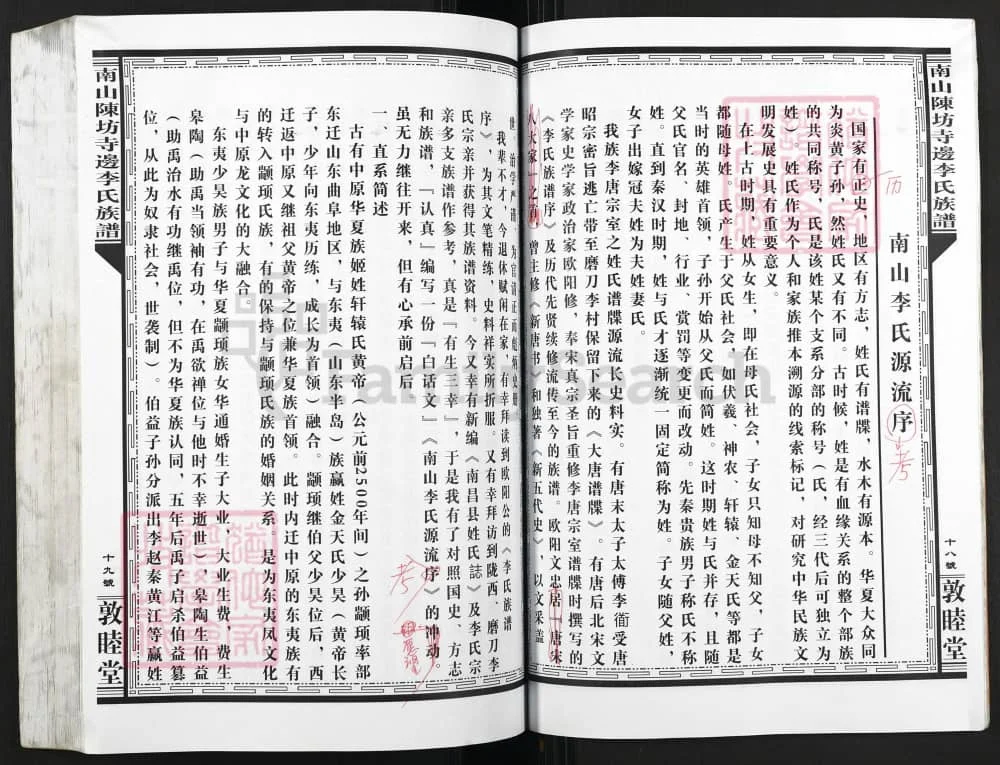 南山陳坊寺邊李氏族譜
十八號
敦睦堂
南山李氏源流序
国家有正史，地区有方志，姓氏有谱牒，水木有源本。华夏大众同
为炎黄子孙，然姓氏又有不同。古时候，姓是有血缘关系的整个部族
的共同称号，氏是该姓某个支系分部的称号（氏，经三代后可独立为
姓）姓氏作为个人和家族推本溯源的线索标记，对研究中华民族文
明发展史具有重要意义。
在上古时期，姓从女生，即在母氏社会，子女只知母不知父，子女
都随母姓。氏产生于父氏社会，如伏羲、神农、轩辕、金天氏等都是
当时的英雄首领，子孙开始从父氏而简姓。这时期姓与氏并存，且随
父氏官名、封地、行业、赏罚等变史而改动。先秦贵族男子称氏不称
姓。直到秦汉时期，姓与氏才逐渐统一固定简称为姓。子女随父姓，
女子出嫁冠夫姓为夫姓妻氏。
我族李唐宗室之姓氏谱牒源流长史料实。有唐末太子太傅李衙受唐
昭宗密旨逃亡带至磨刀李村保留下来的《大唐谱牒》。有唐后北宋文
学家史学家政治家欧阳修，奉宋真宗圣旨重修李唐宗室谱牒时撰写的
《李氏族谱序》及历代先贤续修流传至今的族谱。欧阳文忠居「唐宋
八大家」之首，曾主修《新唐书》和独著《新五代史》，以文采盖
考
历
世、治学严谨、为官清正而彪炳史册。
我辈不才，今退休赋闲在家，有幸拜读到欧阳公的《李氏族谱
序》，为其文笔精练，史料祥实所折服。又有幸拜访到陇西、磨刀李
氏宗亲并获得其族谱资料。今又幸有新编《南昌县姓氏誌》及李氏宗
亲多支族谱作参考，真是『有生三幸』，于是我有了对照国史、方志
和族谱，『认真』编写一份『白话文』《南山李氏源流序》的冲动。
虽无力继往开来，但有心承前启后
一、直系简述
古有中原华夏族姬姓轩辕氏黄帝（公元前2500年间）之孙颛顼率部
东迁山东曲阜地区，与东夷（山东半岛）族赢姓金天氏少昊（黄帝长
子，少年向东夷历练，成长为首领）融合。颛顼继伯父少昊位后，西
迁返中原又继祖父黄帝之位兼华夏族首领。此时内迁中原的东夷族有
的转入颛顼氏族，有的保持与颛顼氏族的婚姻关系。是为东夷凤文化
与中原龙文化的大融合
东夷少昊族男子与华夏颛顼族女华通婚生子大业，大业生费，费生
皋陶（助禹当领袖有功，在禹欲禅位与他时不幸逝世）。皋陶生伯益
（助禹治水有功继禹位，但不为华夏族认同，五年后禹子启杀伯益篡
位，从此为奴隶社会，世袭制）。伯益子孙分派出李赵秦黄江等赢姓
考
南山陳坊寺邊李氏族譜
十九號
敦睦堂
FamilySearch